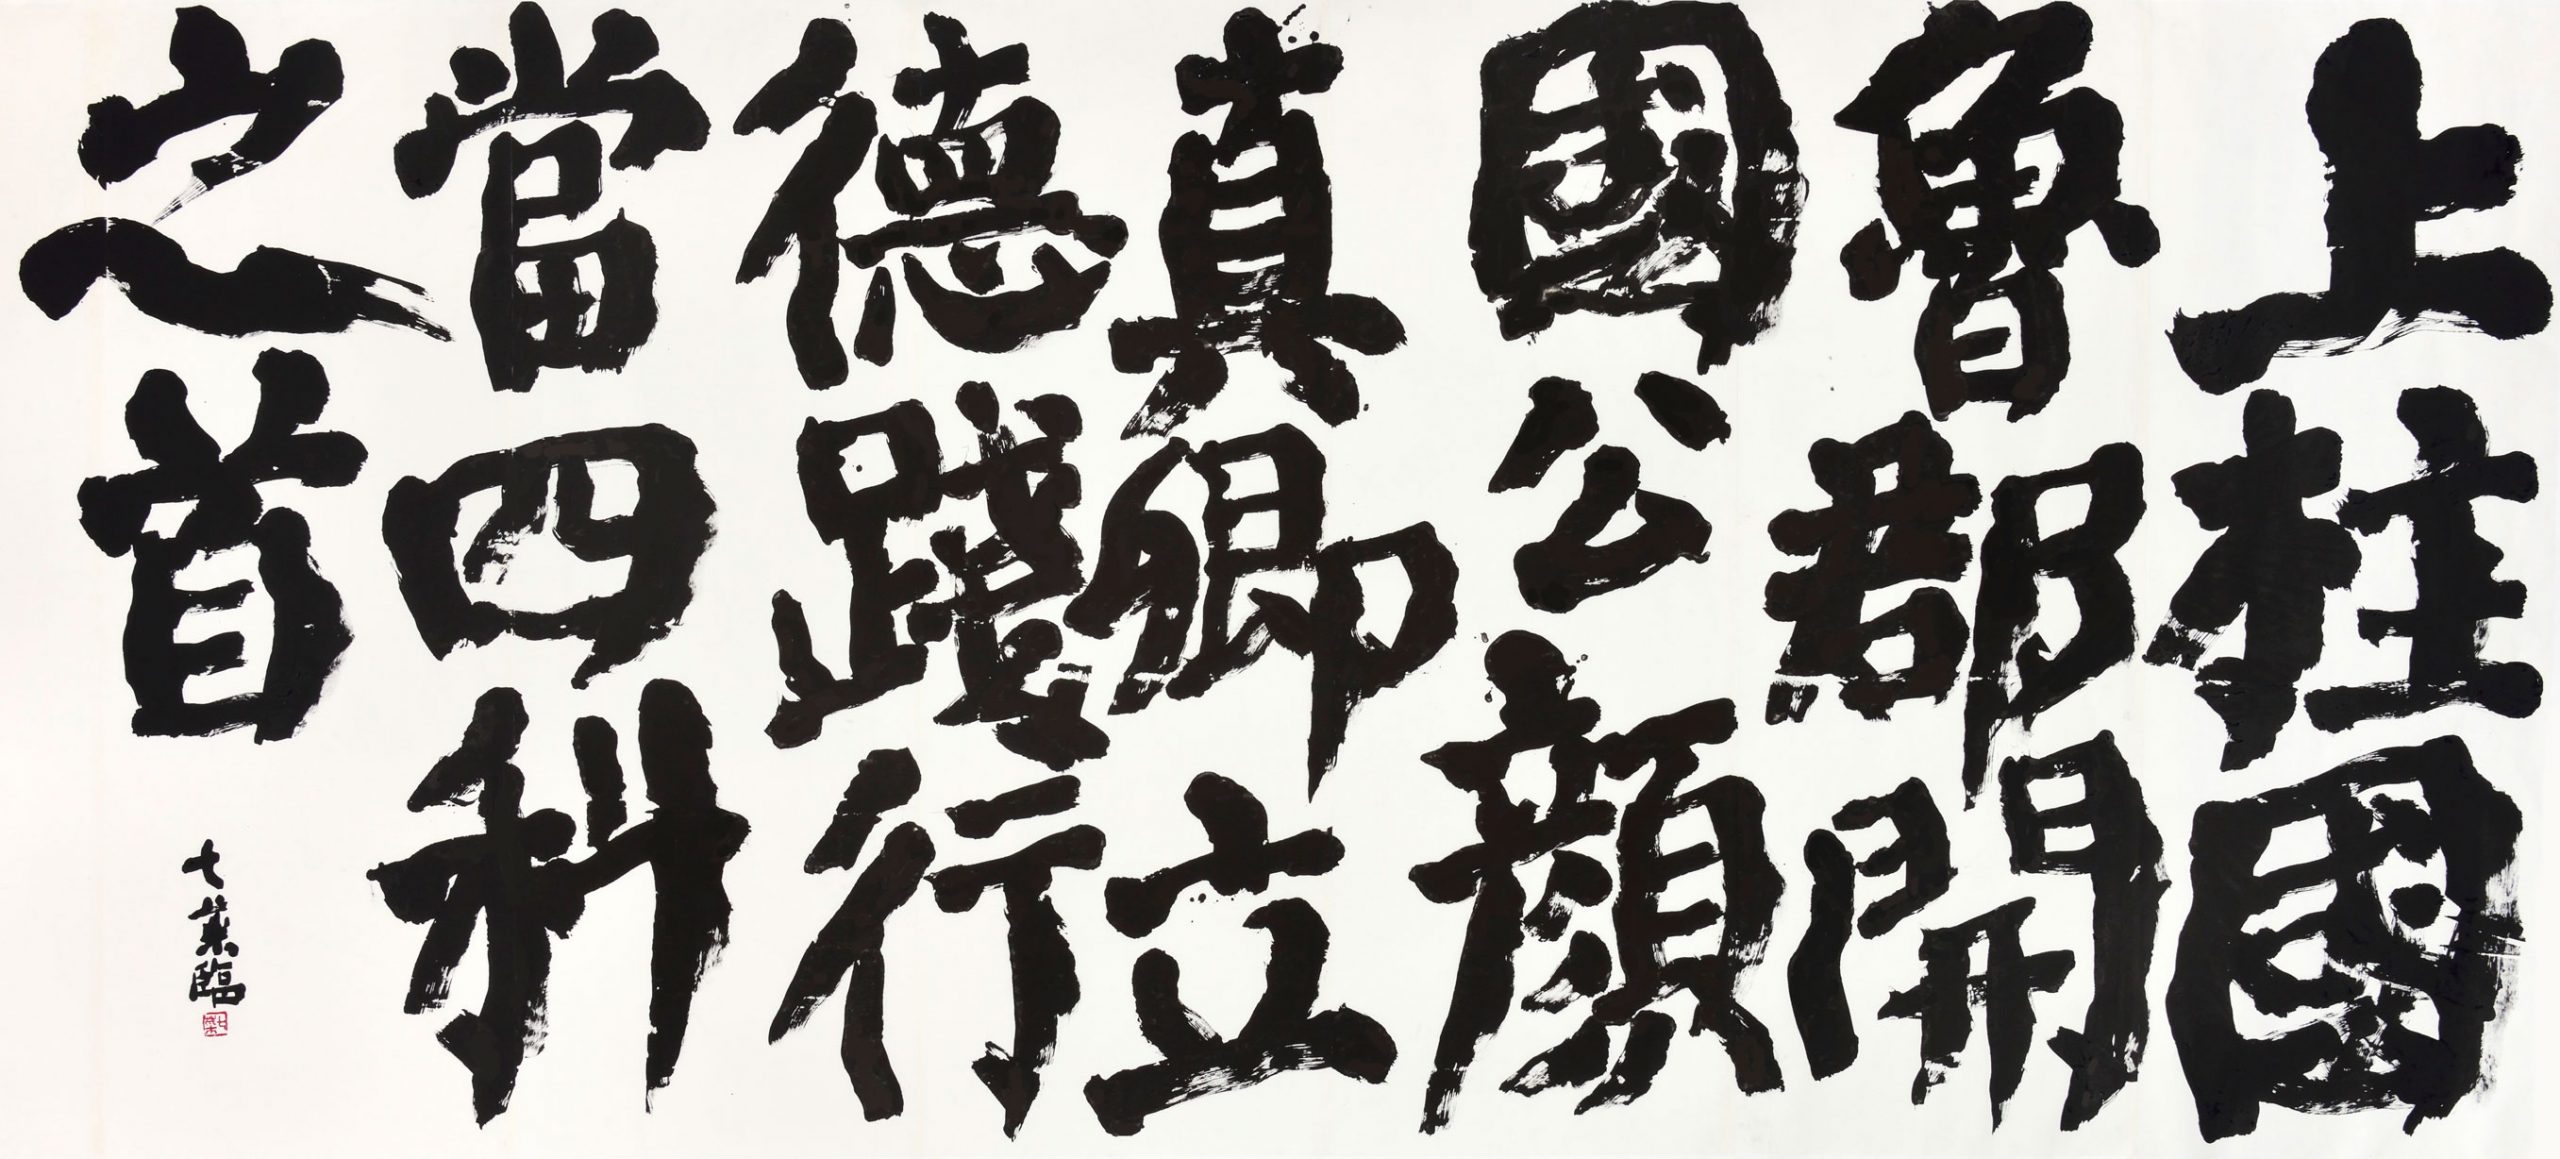 上柱國
魯郡開
國公顏
真卿立
德踐行
當四科
之首
七葉臨